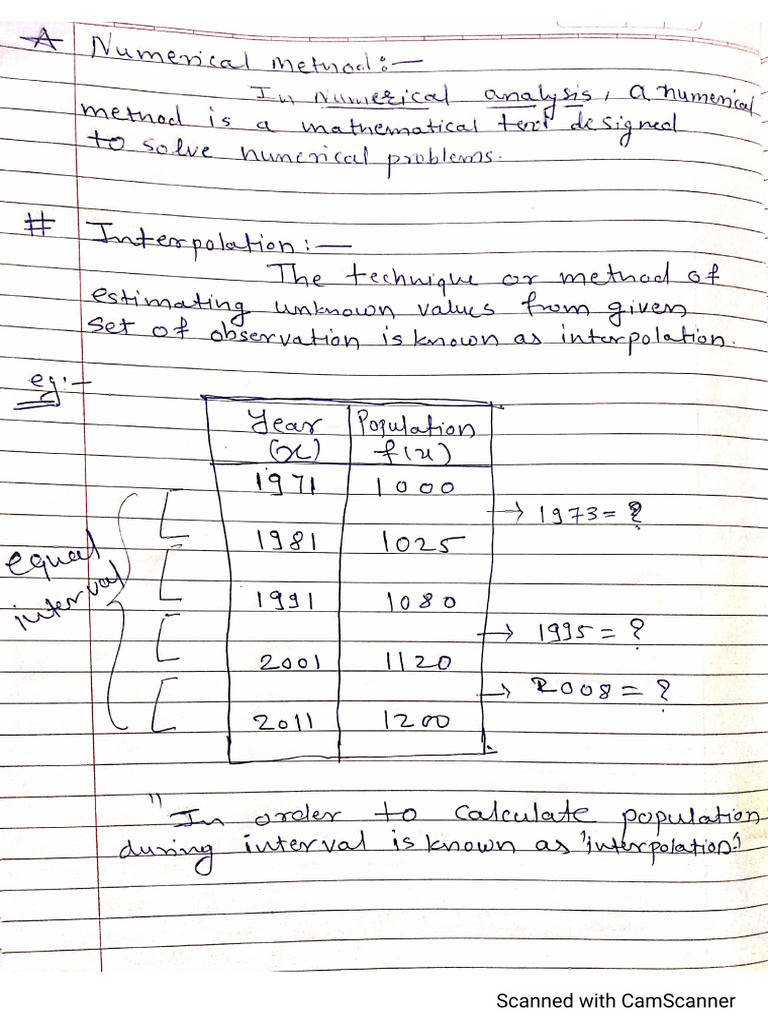 A Numerical Method :—
In Numerical analysis, a numerical
method is a mathematical text designed
to solve numerical problems.
# Interpolation :—
The technique or method of
estimating unknown values from given
set of observation is known as interpolation.
eg:—
Year Population
(x) f(x)
1971 1000
→ 1973 = ?
1981 1025
equal
interval
1991 1080
→ 1995 = ?
2001 1120
→ 2008 = ?
2011 1200
"In order to calculate population
during interval is known as 'interpolation'."
Scanned with CamScanner